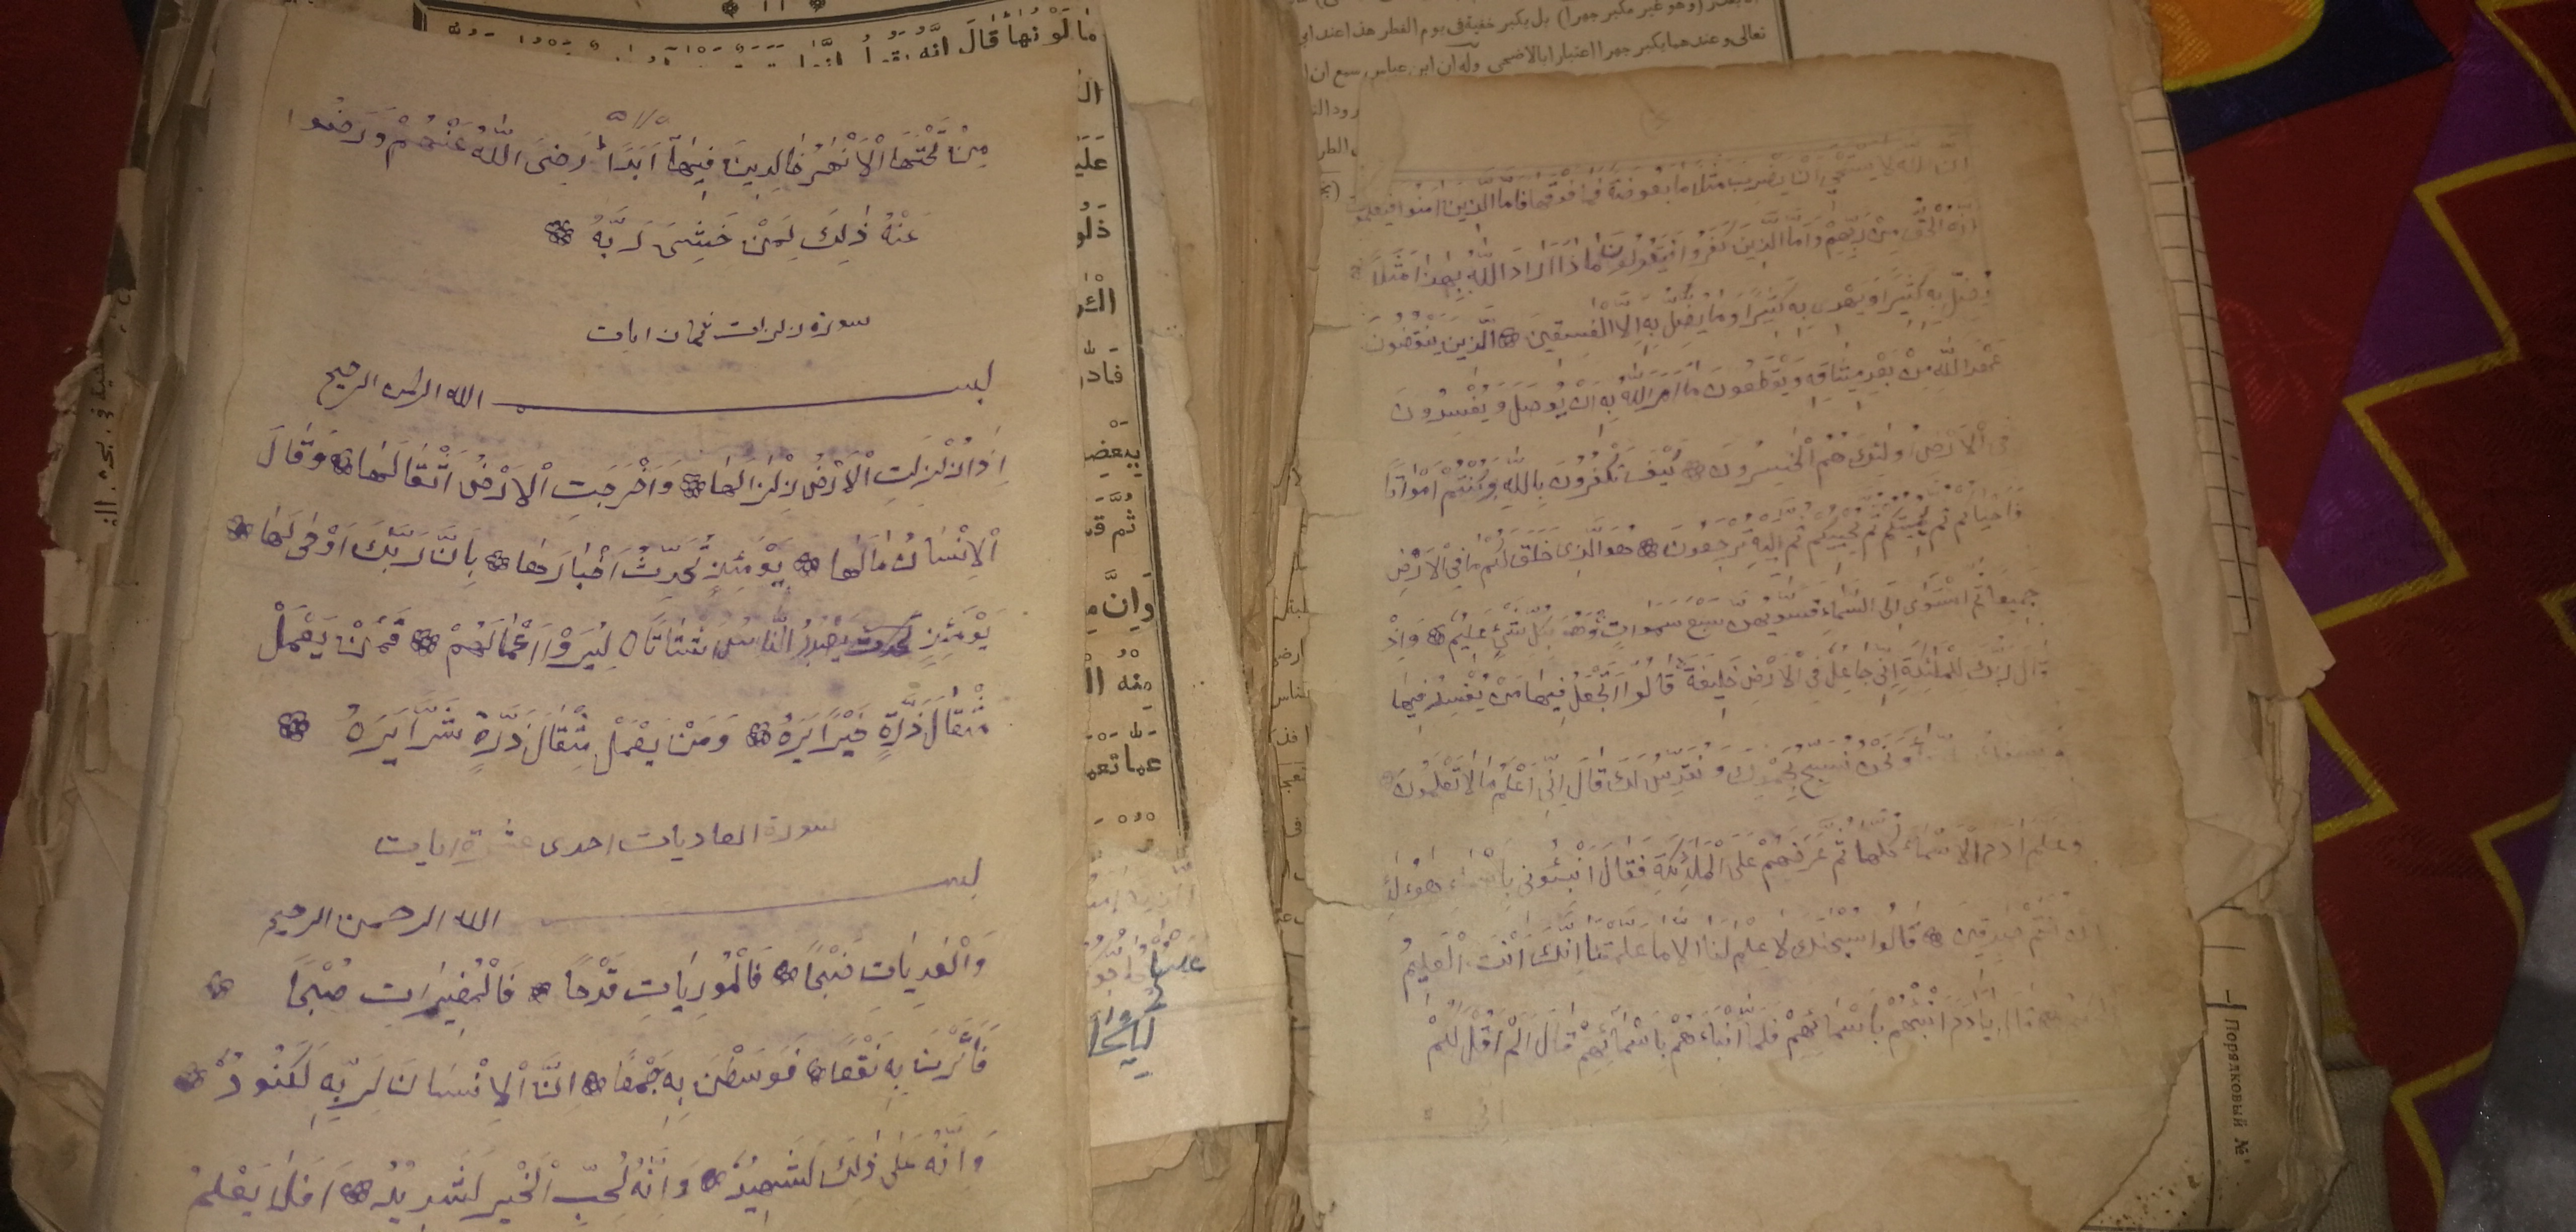 مَا لَوْنُهَا قَالَ اِنَّهُ يَقُولُ
مِنْ تَحْتِهَا الْاَنْهٰرُ خٰالِدِينَ فِيهٰا اَبَدًا رَضِىَ اللّٰهُ عَنْهُمْ وَرَضُوا
عَنْهُ ذٰلِكَ لِمَنْ خَشِىَ رَبَّهُ
سورة زلزلت ثمان ايات
بسم الله الرحمن الرحيم
اِذَا زُلْزِلَتِ الْاَرْضُ زِلْزَالَهٰا وَاَخْرَجَتِ الْاَرْضُ اَثْقَالَهٰا وَقَالَ
الْاِنْسَانُ مَالَهٰا يَوْمَئِذٍ تُحَدِّثُ اَخْبَارَهٰا بِاَنَّ رَبَّكَ اَوْحٰى لَهٰا
يَوْمَئِذٍ يَصْدُرُ النَّاسُ اَشْتَاتًا لِيُرَوْا اَعْمٰالَهُمْ فَمَنْ يَعْمَلْ
مِثْقَالَ ذَرَّةٍ خَيْرًا يَرَهُ وَمَنْ يَعْمَلْ مِثْقَالَ ذَرَّةٍ شَرًّا يَرَهُ
سورة العاديات احدى عشرة ايات
بسم الله الرحمن الرحيم
وَالْعٰدِيَاتِ ضَبْحًا فَالْمُورِيَاتِ قَدْحًا فَالْمُغِيرَاتِ صُبْحًا
فَاَثَرْنَ بِهِ نَقْعًا فَوَسَطْنَ بِهِ جَمْعًا اِنَّ الْاِنْسَانَ لِرَبِّهِ لَكَنُودٌ
وَاِنَّهُ عَلٰى ذٰلِكَ لَشَهِيدٌ وَاِنَّهُ لِحُبِّ الْخَيْرِ لَشَدِيدٌ اَفَلَا يَعْلَمُ
بل يكبر خفية فى يوم الفطر هذا عند ابى
تعالى وعندهما يكبر جهرا اعتبارا بالاضحى وله ان ابن عباس سمع ان ا
انَّ اللّٰهَ لَا يَسْتَحْيٖ اَنْ يَضْرِبَ مَثَلًا مَا بَعُوضَةً فَمَا فَوْقَهَا فَاَمَّا الَّذِينَ اٰمَنُوا فَيَعْلَمُونَ
اَنَّهُ الْحَقُّ مِنْ رَبِّهِمْ وَاَمَّا الَّذِينَ كَفَرُوا فَيَقُولُونَ مَاذَا اَرَادَ اللّٰهُ بِهٰذَا مَثَلًا
يُضِلُّ بِهِ كَثِيرًا وَيَهْدِى بِهِ كَثِيرًا وَمَا يُضِلُّ بِهِ اِلَّا الْفٰسِقِينَ الَّذِينَ يَنْقُضُونَ
عَهْدَ اللّٰهِ مِنْ بَعْدِ مِيثَاقِهِ وَيَقْطَعُونَ مَا اَمَرَ اللّٰهُ بِهِ اَنْ يُوصَلَ وَيُفْسِدُونَ
فِى الْاَرْضِ اُولٰئِكَ هُمُ الْخٰسِرُونَ كَيْفَ تَكْفُرُونَ بِاللّٰهِ وَكُنْتُمْ اَمْوَاتًا
فَاَحْيَاكُمْ ثُمَّ يُمِيتُكُمْ ثُمَّ يُحْيِيكُمْ ثُمَّ اِلَيْهِ تُرْجَعُونَ هُوَ الَّذِى خَلَقَ لَكُمْ مَا فِى الْاَرْضِ
جَمِيعًا ثُمَّ اسْتَوٰى اِلَى السَّمَاءِ فَسَوّٰيهُنَّ سَبْعَ سَمٰوَاتٍ وَهُوَ بِكُلِّ شَىْءٍ عَلِيمٌ وَاِذْ
قَالَ رَبُّكَ لِلْمَلٰئِكَةِ اِنِّى جَاعِلٌ فِى الْاَرْضِ خَلِيفَةً قَالُوا اَتَجْعَلُ فِيهَا مَنْ يُفْسِدُ فِيهَا
وَنَحْنُ نُسَبِّحُ بِحَمْدِكَ وَنُقَدِّسُ لَكَ قَالَ اِنِّى اَعْلَمُ مَا لَا تَعْلَمُونَ
وَعَلَّمَ اٰدَمَ الْاَسْمَاءَ كُلَّهَا ثُمَّ عَرَضَهُمْ عَلَى الْمَلٰئِكَةِ فَقَالَ اَنْبِئُونِى بِاَسْمَاءِ هٰؤُلَاءِ
اِنْ كُنْتُمْ صٰدِقِينَ قَالُوا سُبْحٰنَكَ لَا عِلْمَ لَنَا اِلَّا مَا عَلَّمْتَنَا اِنَّكَ اَنْتَ الْعَلِيمُ
قَالَ يَا اٰدَمُ اَنْبِئْهُمْ بِاَسْمَائِهِمْ فَلَمَّا اَنْبَاَهُمْ بِاَسْمَائِهِمْ قَالَ اَلَمْ اَقُلْ لَكُمْ
Порядковый №